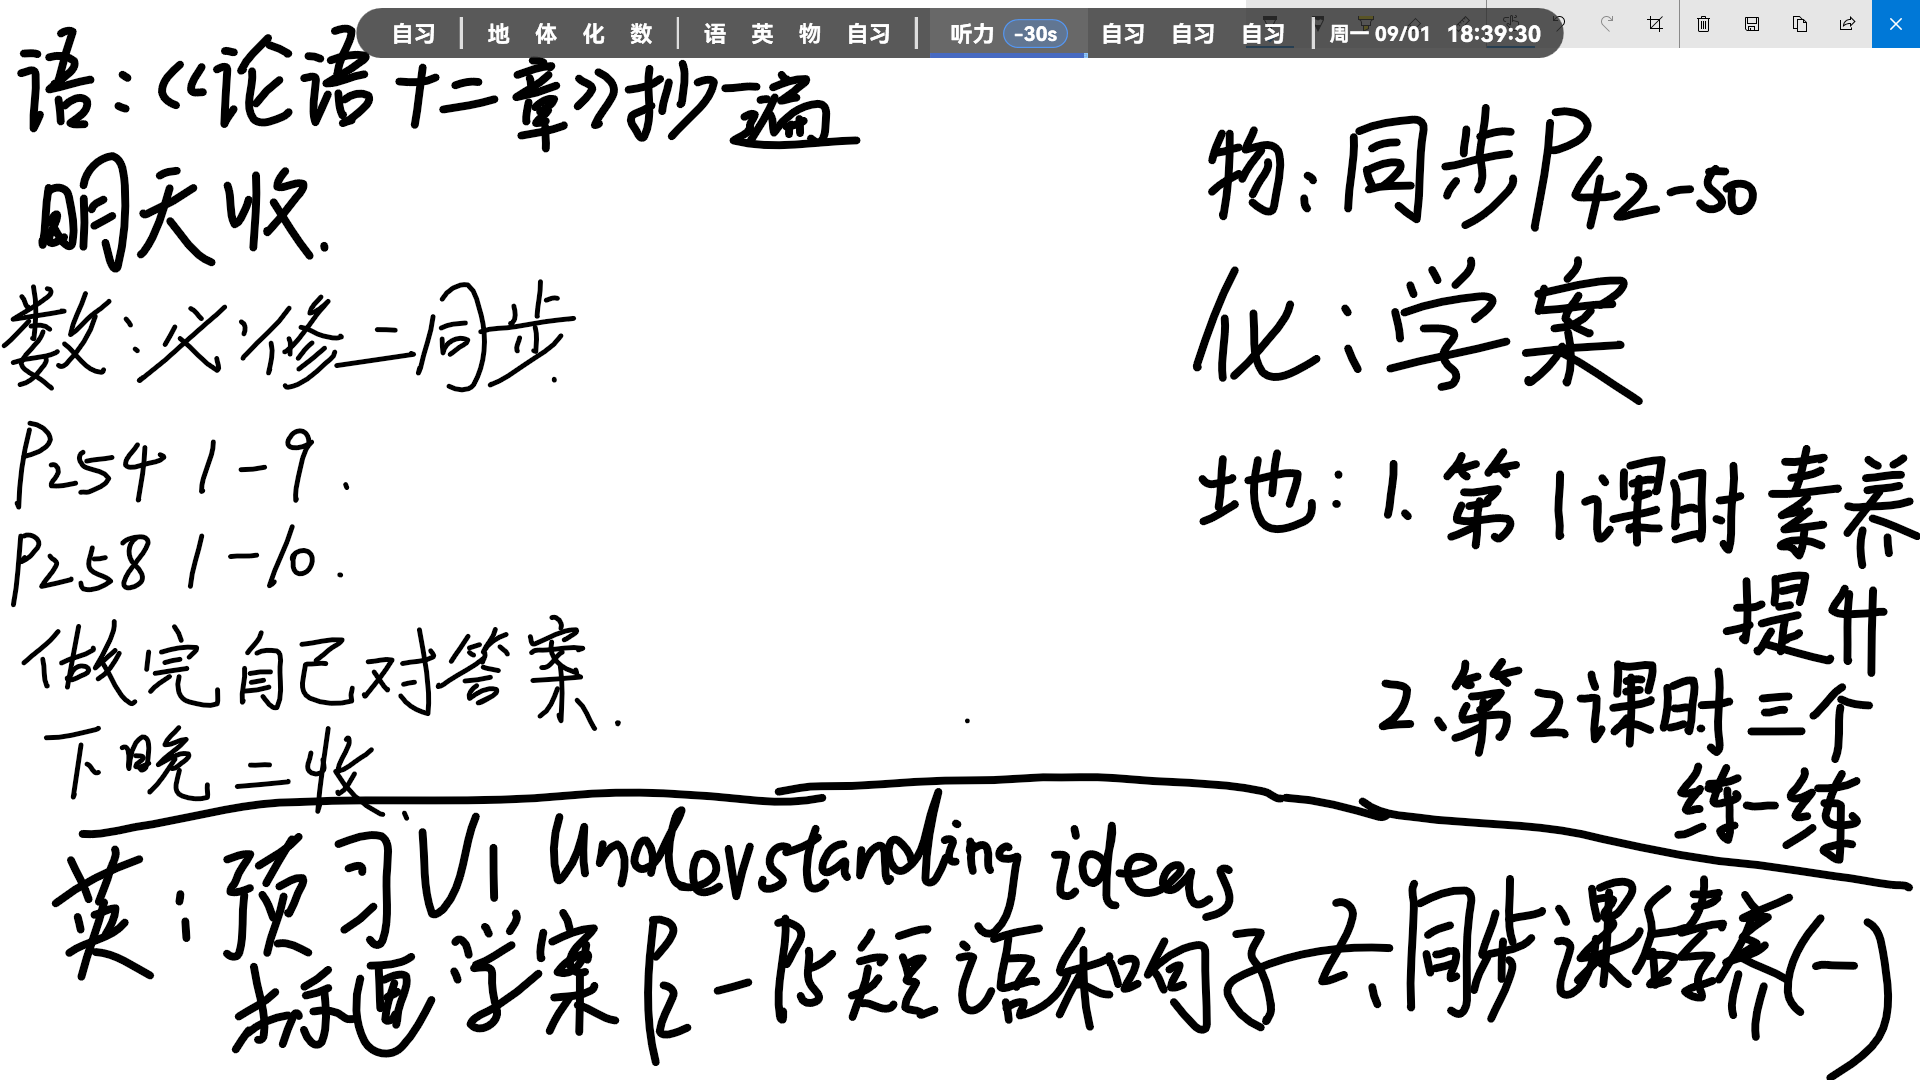 自习 | 地 体 化 数 | 语 英 物 自习 | 听力 -30s 自习 自习 自习 | 周一 09/01 18:39:30
语:《论语十二章》抄一遍
明天收.
数:必修二同步.
P254 1-9.
P258 1-10.
做完自己对答案.
下晚二收.
物:同步P42-50
化:学案
地:1.第1课时素养
提升
2.第2课时三个
练一练
英:预习U1 Understanding ideas
标画学案P2-P5短语和句子 2.同步课后素养(一)